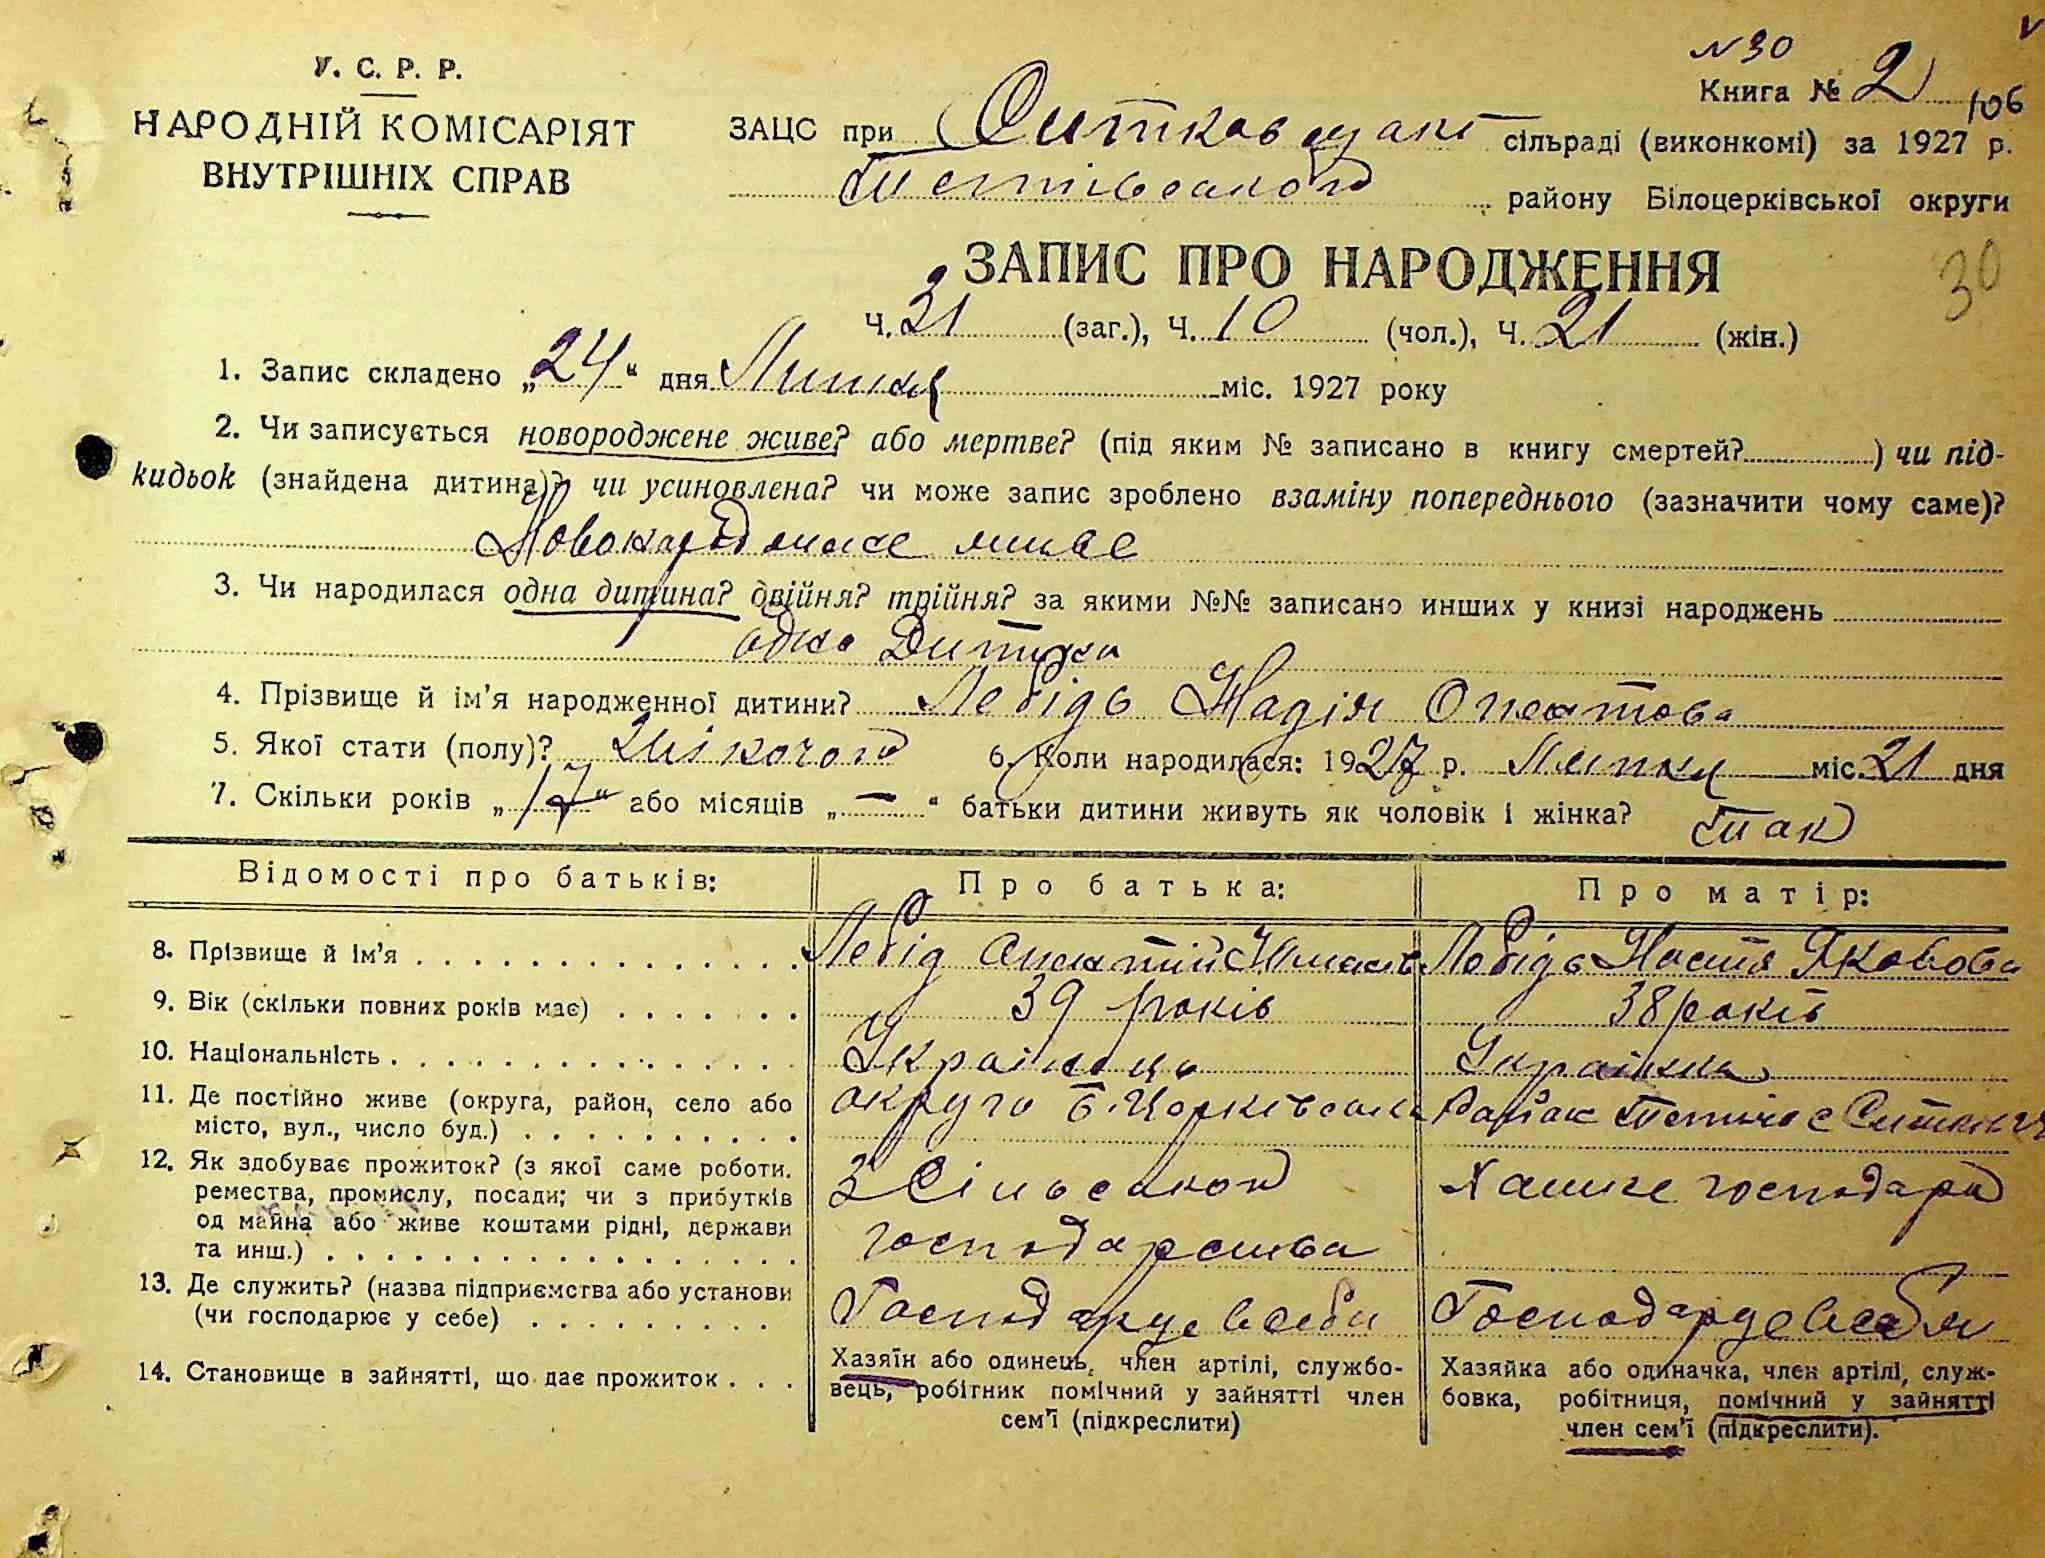 У. С. Р. Р.
НАРОДНІЙ КОМІСАРІЯТ
ВНУТРІШНІХ СПРАВ
№ 30
Книга № 2
106
ЗАЦС при сільраді (виконкомі) за 1927 р.
Тетіївського району Білоцерківської округи
ЗАПИС ПРО НАРОДЖЕННЯ
30
Ч. 31 (заг.), Ч. 10 (чол.), Ч. 21 (жін.)
1. Запис складено „24“ дня Липня міс. 1927 року
2. Чи записується новороджене живе? або мертве? (під яким № записано в книгу смертей? ) чи під-
кидьок (знайдена дитина)? чи усиновлена? чи може запис зроблено взаміну попереднього (зазначити чому саме)?
живе
3. Чи народилася одна дитина? двійня? трійня? за якими №№ записано инших у книзі народжень
одна Дитина
4. Прізвище й ім’я народженної дитини? Лебідь Надія
5. Якої стати (полу)? Жіночого 6. Коли народилася: 1927 р. Липня міс. 21 дня
7. Скільки років „17“ або місяців „—“ батьки дитини живуть як чоловік і жінка? Так
Відомості про батьків: Про батька: Про матір:
8. Прізвище й ім’я Лебід Лебідь Настя Яковова
9. Вік (скільки повних років має) 39 років 38 років
10. Національність Українець Українка
11. Де постійно живе (округа, район, село або
місто, вул., число буд.) округа Б. Церківська
12. Як здобуває прожиток? (з якої саме роботи.
ремества, промислу, посади; чи з прибутків
од майна або живе коштами рідні, держави
та инш.)
З Сільського
господарства
13. Де служить? (назва підприємства або установи
(чи господарює у себе)
Господарує в себе
14. Становище в зайнятті, що дає прожиток
Хазяїн або одинець, член артілі, службо-
вець, робітник помічний у зайнятті член
сем’ї (підкреслити)
Хазяйка або одиначка, член артілі, служ-
бовка, робітниця, помічний у зайнятті
член сем’ї (підкреслити).